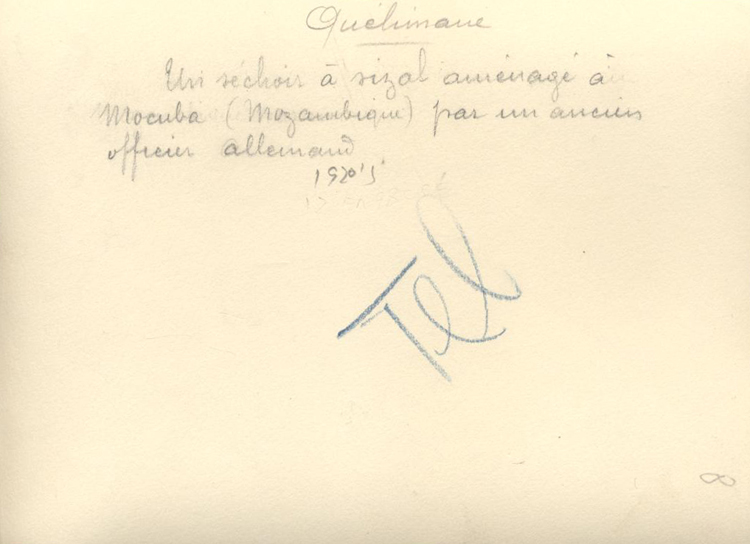 Quélimane
Un séchoir à sizal aménagé à
Mocuba (Mozambique) par un ancien
officier allemand
1920's
Tel
8